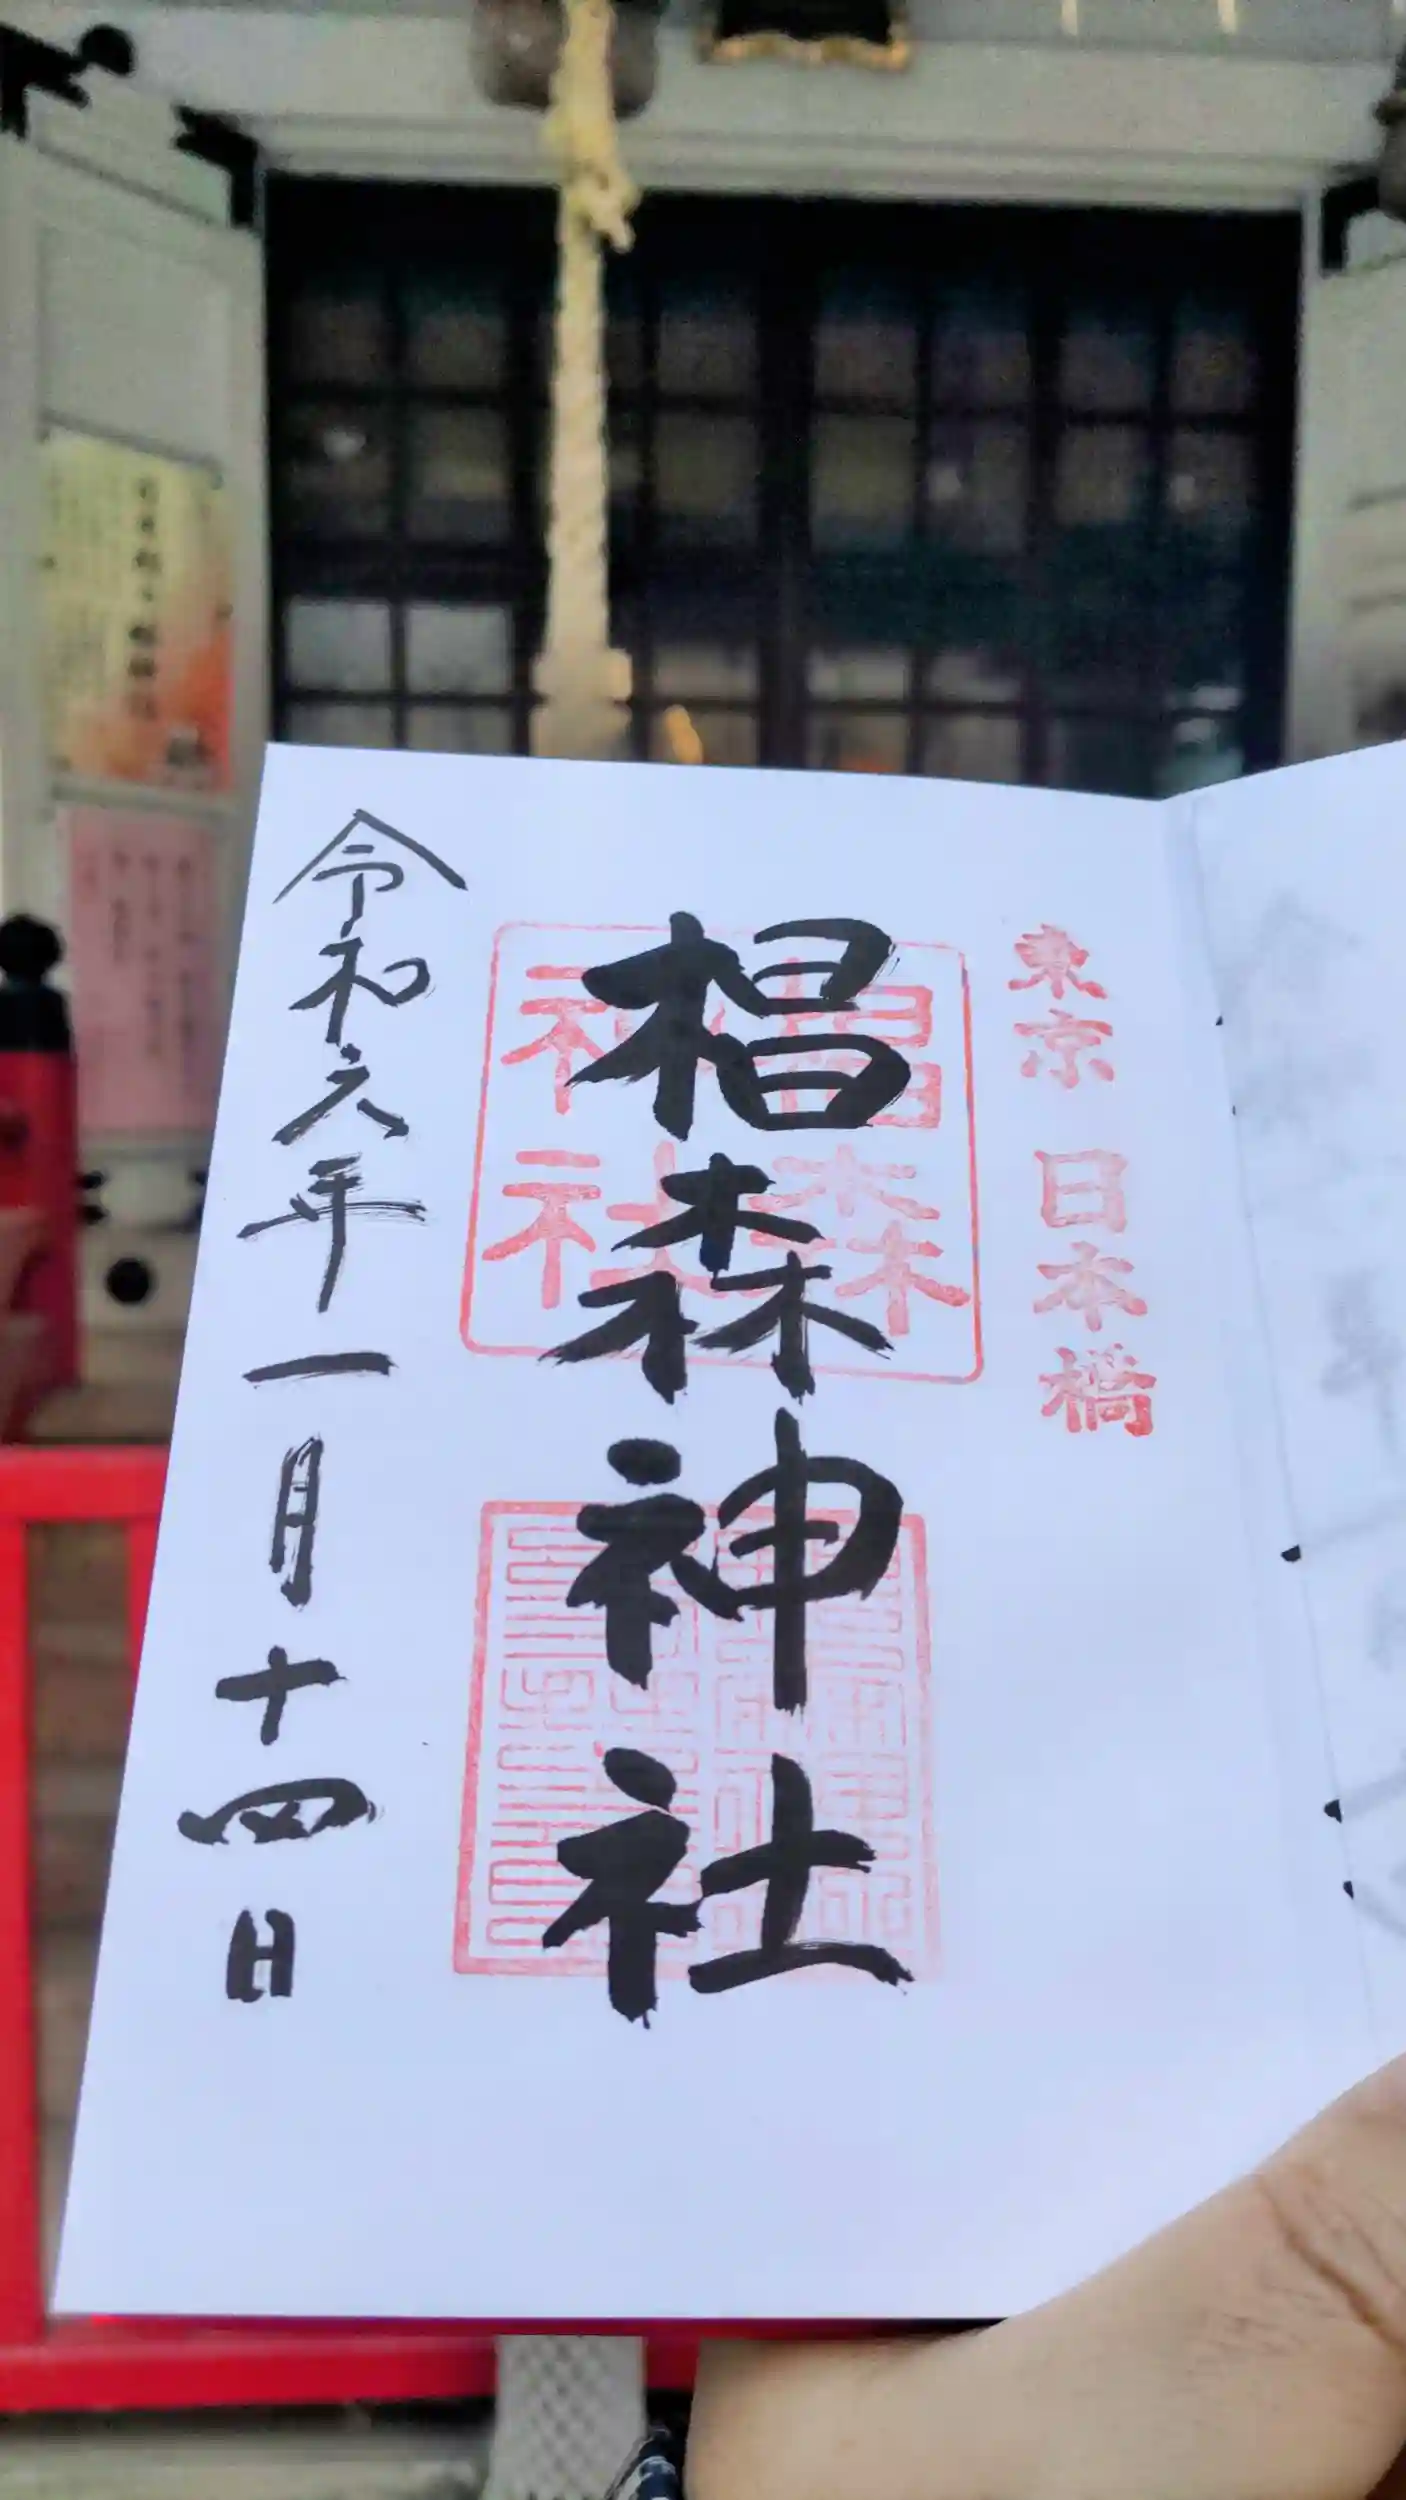 東京 日本橋
椙森神社
椙森
神社
令和六年一月十四日